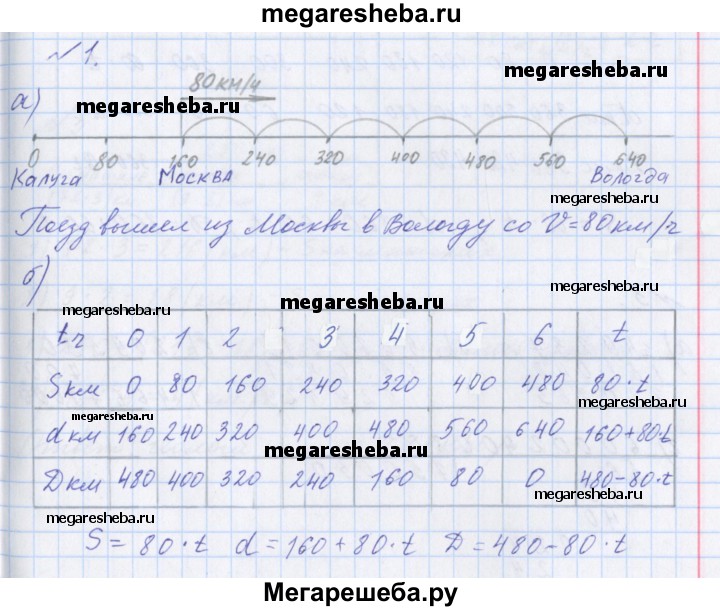 megaresheba.ru
№1.
80 км/ч
а)
megaresheba.ru
megaresheba.ru
0 80 160 240 320 400 480 560 640
Калуга Москва Вологда
megaresheba.ru
Поезд вышел из Москвы в Вологду со V=80км/ч
б)
megaresheba.ru
megaresheba.ru
t ч 0 1 2 3 4 5 6 t
S км 0 80 160 240 320 400 480 80·t
megaresheba.ru
megaresheba.ru
d км 160 240 320 400 480 560 640 160+80·t
megaresheba.ru
D км 480 400 320 240 160 80 0 480-80·t
megaresheba.ru
megaresheba.ru
S = 80·t d = 160+80·t D = 480-80·t
Мегарешеба.ру